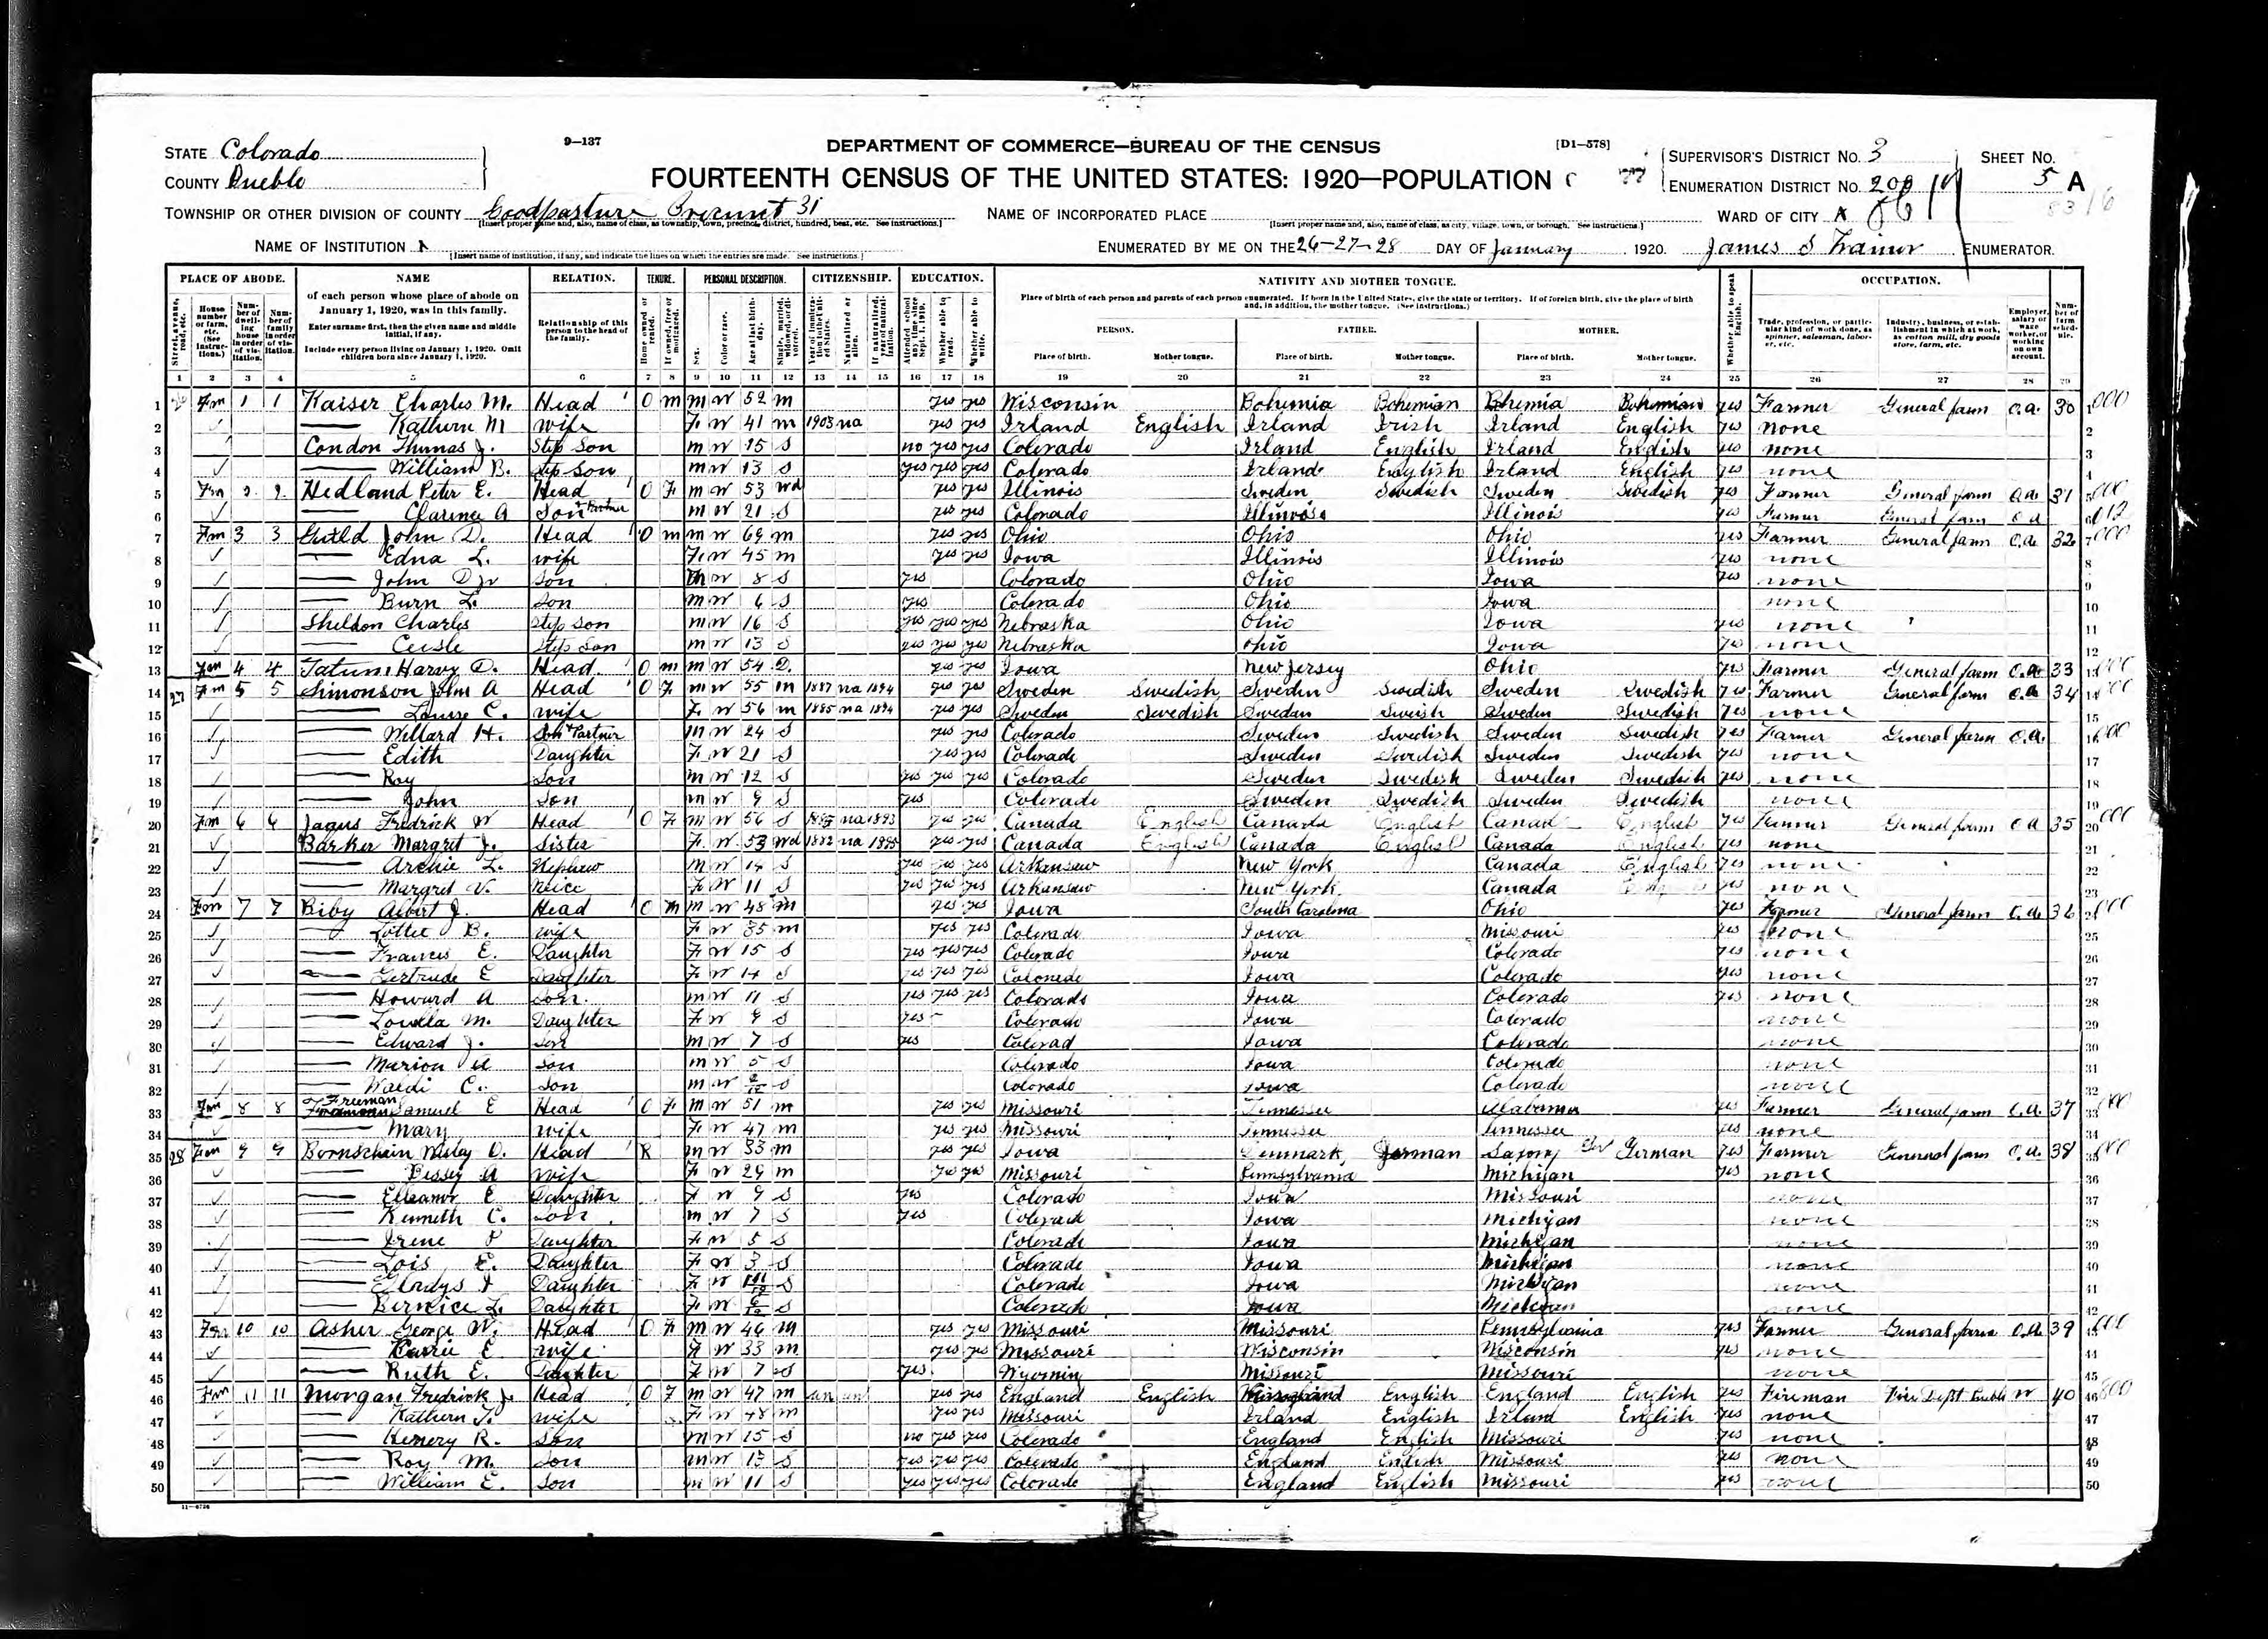 9—137
DEPARTMENT OF COMMERCE—BUREAU OF THE CENSUS
[D1—578]
STATE Colorado
COUNTY Pueblo
FOURTEENTH CENSUS OF THE UNITED STATES: 1920—POPULATION
SUPERVISOR'S DISTRICT No. 3
ENUMERATION DISTRICT No. 200
SHEET No. 5 A
8316
TOWNSHIP OR OTHER DIVISION OF COUNTY Goodpasture Precinct 31
[Insert proper name and, also, name of class, as township, town, precinct, district, hundred, beat, etc. See instructions.]
NAME OF INCORPORATED PLACE
[Insert proper name and, also, name of class, as city, village, town, or borough. See instructions.]
WARD OF CITY X
NAME OF INSTITUTION X
[Insert name of institution, if any, and indicate the lines on which the entries are made. See instructions.]
ENUMERATED BY ME ON THE 26-27-28 DAY OF January 1920. James S Trainor ENUMERATOR.
PLACE OF ABODE. NAME RELATION. TENURE. PERSONAL DESCRIPTION. CITIZENSHIP. EDUCATION. NATIVITY AND MOTHER TONGUE. OCCUPATION.
of each person whose place of abode on January 1, 1920, was in this family.
Enter surname first, then the given name and middle initial, if any.
Include every person living on January 1, 1920. Omit children born since January 1, 1920.
Relationship of this person to the head of the family.
Place of birth of each person and parents of each person enumerated. If born in the United States, give the state or territory. If of foreign birth, give the place of birth and, in addition, the mother tongue. (See instructions.)
PERSON. FATHER. MOTHER.
Place of birth. Mother tongue. Place of birth. Mother tongue. Place of birth. Mother tongue.
1 2 3 4 5 6 7 8 9 10 11 12 13 14 15 16 17 18 19 20 21 22 23 24 25 26 27 28 29
1 Fm 1 1 Kaiser Charles M. Head O m m W 52 m yes yes Wisconsin Bohemia Bohemian Bohemia Bohemian yes Farmer General farm O.a. 30
2 Kathern M wife F W 41 m 1903 na yes yes Irland English Irland Irish Irland English yes none
3 Condon Thomas J. Step Son m W 15 S no yes yes Colorado Irland English Irland English yes none
4 William B. Step Son m W 13 S yes yes yes Colorado Irland English Irland English yes none
5 Fm 2 2 Hedland Peter E. Head O F m W 53 wd yes yes Illinois Sweden Swedish Sweden Swedish yes Farmer General farm O.a. 31
6 Clarence A Son + Partner m W 21 S yes yes Colorado Illinois Illinois yes Farmer General farm O a
7 Fm 3 3 Guild John D. Head O m m W 69 m yes yes Ohio Ohio Ohio yes Farmer General farm O.a. 32
8 Edna L. wife F W 45 m yes yes Iowa Illinois Illinois yes none
9 John D Jr Son m W 8 S yes Colorado Ohio Iowa yes none
10 Burn L. Son m W 6 S yes Colorado Ohio Iowa none
11 Sheldon Charles Step son m W 16 S yes yes yes Nebraska Ohio Iowa yes none
12 Step Son m W 13 S yes yes yes Nebraska Ohio Iowa yes none
13 Fm 4 4 Tatum Harvy D. Head O m m W 54 D. yes yes Iowa New Jersey Ohio yes Farmer General farm O.a. 33
14 27 Fm 5 5 Simonson John A Head O F m W 55 m 1887 na 1894 yes yes Sweden Swedish Sweden Swedish Sweden Swedish yes Farmer General farm O.a. 34
15 Louise C. wife F W 56 m 1885 na 1894 yes yes Sweden Swedish Sweden Sweish Sweden Swedish yes none
16 Willard H. Son + Partner m W 24 S yes yes Colorado Sweden Swedish Sweden Swedish yes Farmer General farm O.a.
17 Edith Daughter F W 21 S yes yes Colorado Sweden Swedish Sweden Swedish yes none
18 Roy Son m W 12 S yes yes yes Colorado Sweden Swedish Sweden Swedish yes none
19 John Son m W 9 S yes Colorado Sweden Swedish Sweden Swedish none
20 Fm 6 6 Jagus Fredrick W Head O F m W 56 S na 1893 yes yes Canada English Canada English Canad English yes Farmer General farm O a 35
21 Barker Margret J. Sister F W 53 wd 1882 na 1895 yes yes Canada English Canada English Canada English yes none
22 Archie L. Nephew m W 14 S yes yes yes Arkansaw New York Canada English yes none
23 Margret V. Neice F W 11 S yes yes yes Arkansaw New York Canada yes none
24 Fm 7 7 Biby Albert J. Head O m m W 48 m yes yes Iowa South Carolina Ohio yes Farmer General farm O.a. 36
25 Lottie B. wife F W 35 m yes yes Colorado Iowa Missouri yes none
26 Francis E. Daughter F W 15 S yes yes yes Colorado Iowa Colorado yes none
27 Gertrude E Daughter F W 14 S yes yes yes Colorado Iowa Colorado yes none
28 Howard A Son. m W 11 S yes yes yes Colorado Iowa Colorado yes none
29 Louella M. Daughter F W 9 S yes Colorado Iowa Colorado none
30 Edward J. Son m W 7 S yes Colorad Iowa Colorado none
31 Marion Son m W 5 S Colorado Iowa Colorado none
32 Waldi C. Son m W S Colorado Iowa Colorado none
33 Fm 8 8 Freeman Samuel E Head O F m W 51 m yes yes Missouri Tennessee Alabama yes Farmer General farm O.a. 37
34 Mary wife F W 47 m yes yes Missouri Tennessee Tennessee yes none
35 28 Fm 9 9 Bornschein Wesley D. Head R m W 33 m yes yes Iowa Denmark German Saxony Ger German yes Farmer General farm O.a. 38
36 Bessey A wife F W 29 m yes yes Missouri Pennsylvania Michigan yes none
37 Elleanor E Daughter F W 9 S yes Colorado Iowa Missouri none
38 Kenneth C. Son m W 7 S yes Colorado Iowa Michigan none
39 Irene P Daughter F W 5 S Colorado Iowa Michigan none
40 Lois E. Daughter F W 3 S Colorado Iowa Michigan none
41 Gladys Daughter F W S Colorado Iowa Michigan none
42 Bernice L. Daughter F W S Colorado Iowa Michigan none
43 Fm 10 10 Asher George W. Head O F m W 46 m yes yes Missouri Missouri Pennsylvania yes Farmer General farm O.a. 39
44 Carrie E wife F W 33 m yes yes Missouri Wisconsin Wisconsin yes none
45 Ruth E. Daughter F W 7 S yes Wyomin Missouri Missouri none
46 Fm 11 11 Morgan Fredrick J. Head O F m W 47 m un un yes yes England English English England English yes Fireman Fire Dept Pueblo W 40
47 Kathern wife F W 48 m yes yes Missouri Irland English Irland English yes none
48 Henery R. Son m W 15 S no yes yes Colorado England English Missouri yes none
49 Roy M. Son m W 13 S yes yes yes Colorado England English Missouri yes none
50 William E. Son m W 11 S yes yes yes Colorado England English Missouri yes none
11—6724